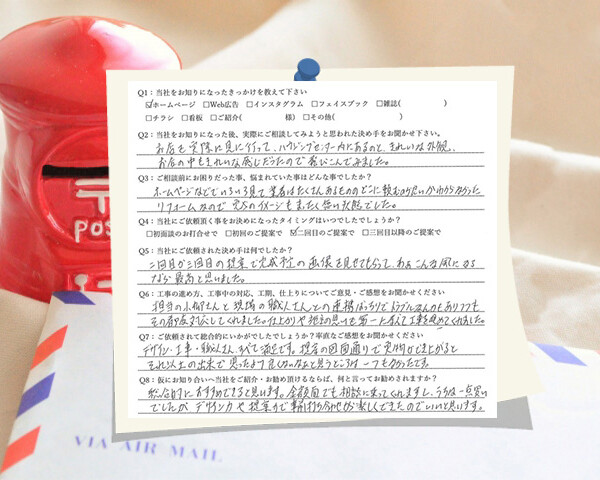 Q1：当社をお知りになったきっかけを教えて下さい
☑ホームページ □Web広告 □インスタグラム □フェイスブック □雑誌( )
□チラシ □看板 □ご紹介( 様) □その他( )
Q2：当社をお知りになった後、実際にご相談してみようと思われた決め手をお聞かせ下さい。
お店を実際に見に行って、ハウジングセンター内にあるのと、きれいな外観、
お店の中もきれいな感じだったので飛びこんでみました。
Q3：ご相談前にお困りだった事、悩まれていた事はどんな事でしたか？
ホームページなどでいろいろ見て業者はたくさんあるもののどこに頼むのが良いかわからなかった
リフォームなので完成のイメージもまったく無い状態でした。
Q4：当社にご依頼頂く事をお決めになったタイミングはいつでしたでしょうか？
□初面談のお打合せで □初回のご提案で ☑二回目のご提案で □三回目以降のご提案で
Q5：当社にご依頼された決め手は何でしたか？
二回目か三回目の提案で完成予定の画像を見せてもらって、わぁこんな風になる
なら最高と思いました。
Q6：工事の進め方、工事中の対応、工期、仕上りについてご意見・ご感想をお聞かせください
担当の さんと現場の職人さんとの連携ばっちりでトラブル もありつつも
その都度対応してくれました。仕上がりや施主の思いを第一に考えて工事を進めてくれました。
Q7：ご依頼されて総合的にいかがでしたでしょうか？率直なご感想をお聞かせください
デザイン・工事・職人さん、すべて満足です。提案の図面通りで実物ができ上がると
それ以上の出来で思ったより良くないなぁと思うところは一つもなかったです。
Q8：仮にお知り合いへ当社をご紹介・お勧め頂けるならば、何と言ってお勧めされますか？
総合的におすすめできると思います。金額面でも相談に乗ってくれますし、うちは一点買い
でしたが デザイン力や提案力で 打ち合わせが楽しくできたのでいいと思います。
POS
VIA AIR MAIL